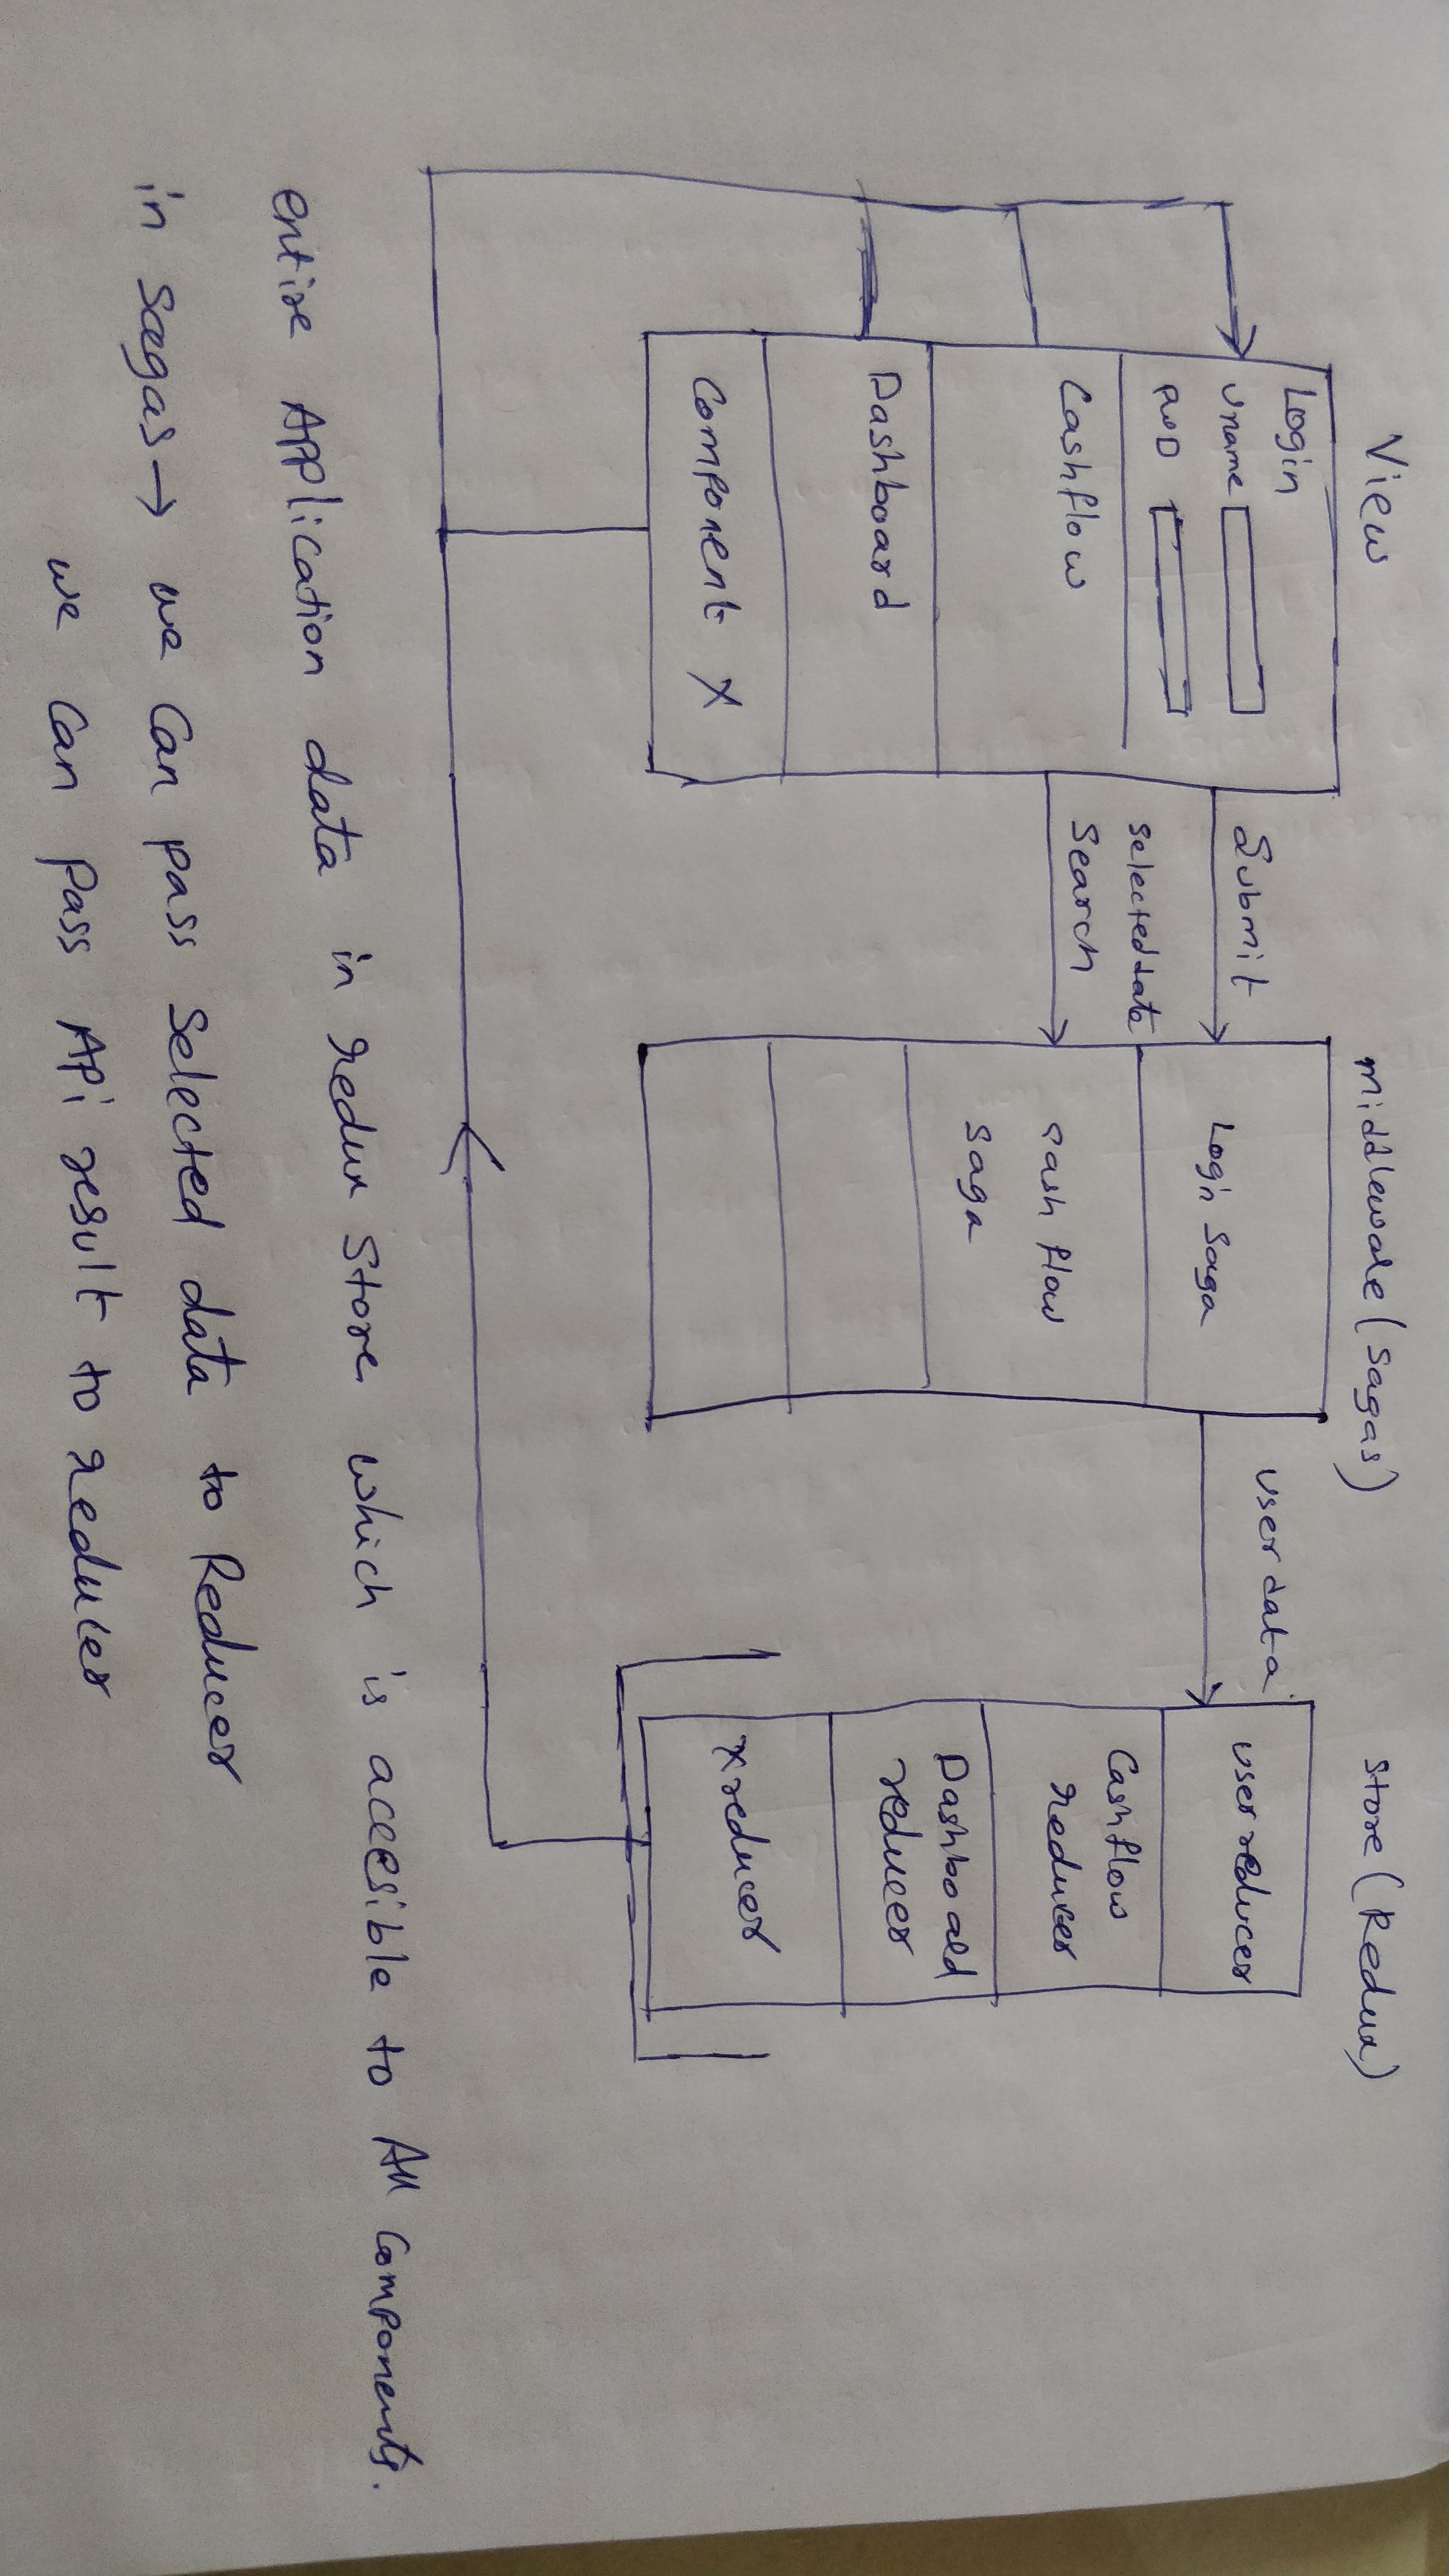 View
Login
Uname
PWD
Cashflow
Dashboard
Component X
Submit
selected data
Search
middleware (sagas)
Login Saga
cash flow
saga
user data
Store (Redux)
user reducer
Cashflow
reducer
Dashboard
reducer
X reducer
entire Application data in redux Store which is accesible to All components.
in sagas → we can pass selected data to Reducer
we can pass Api result to reducer